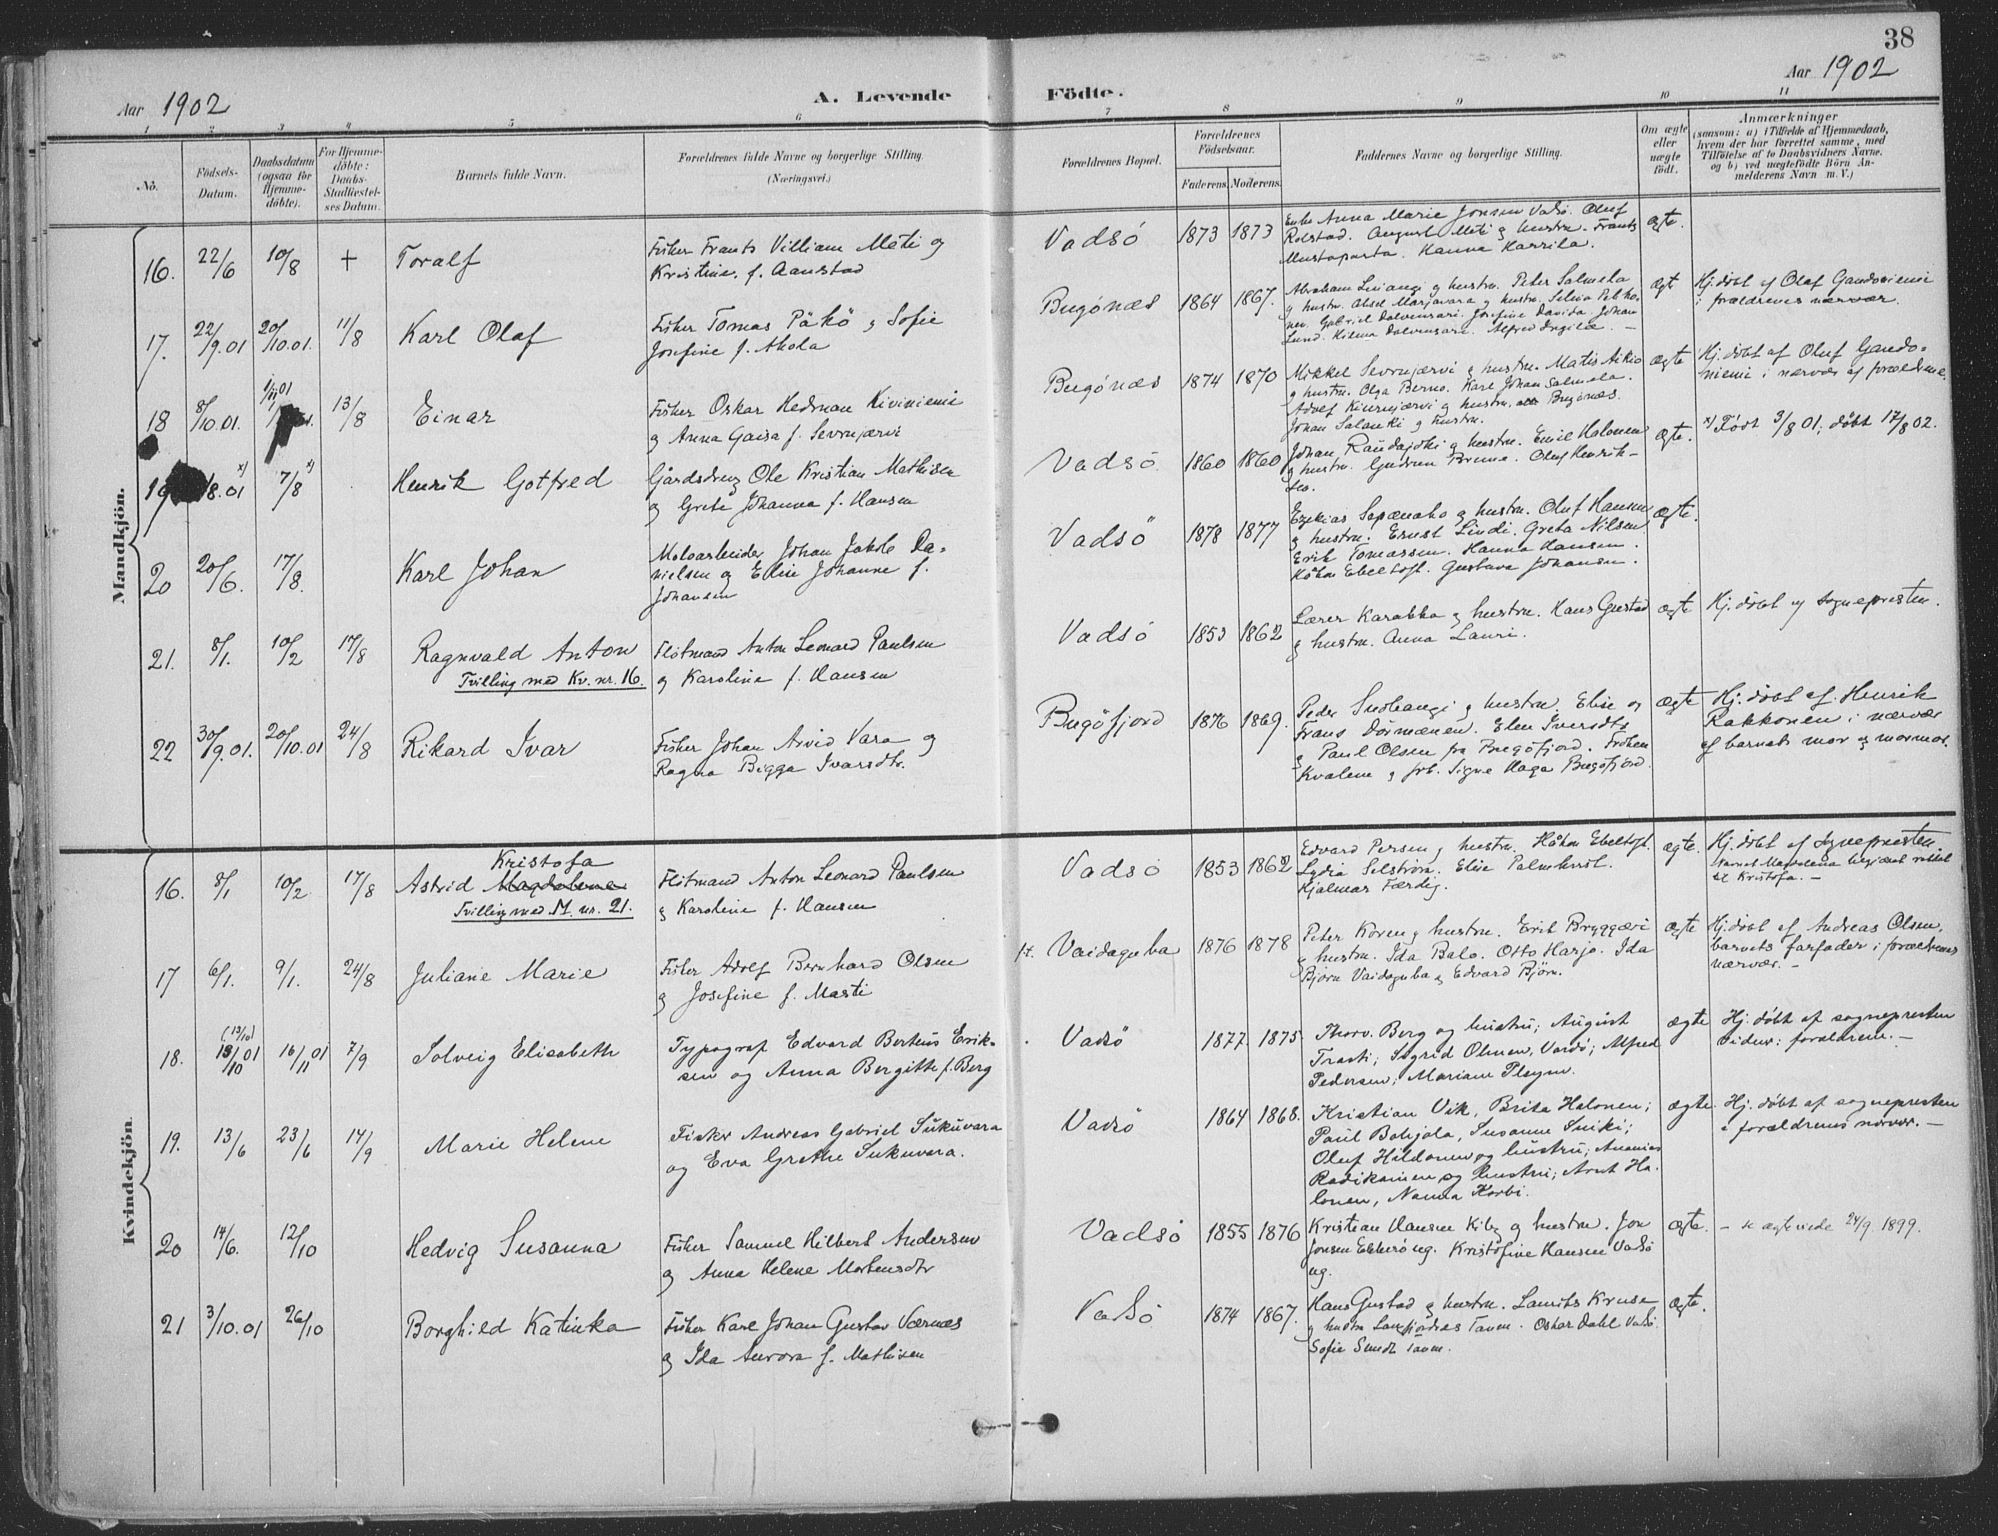 38
Aar 1902
A. Levende
Födte.
Aar 1902
1 2 3 4 5 6 7 8 9 10 11
No.
Födsels-
Datum.
Daabsdatum
(ogsaa for
Hjemme-
döbte).
For Hjemme-
döbte:
Daabs-
Stadfæstel-
ses Datum.
Barnets fulde Navn.
Forældrenes fulde Navne og borgerlige Stilling.
(Næringsvei.)
Forældrenes Bopæl.
Forældrenes
Födselsaar.
Faderens. Moderens.
Faddernes Navne og borgerlige Stilling.
Om ægte
eller
uægte
födt.
Anmærkninger
(saasom: a) i Tilfælde af Hjemmedaab,
hvem der har forrettet samme, med
Tilföielse af to Daabsvidners Navne.
og b) ved uægtefödte Börn An-
melderens Navn m. V.)
Mandkjön.
16. 22/6 10/8 + Toralf
Fisker Frants Villiam Meti og
Kristine f. Aanstad
Vadsö 1873 1873
Enke Anna Marie Jonsen Vadsö. Oluf
Rolstad. August Meti og hustru. Frants
Mustaparta. Hanna Karrila.
ægte.
17. 22/9.01 20/10.01. 11/8 Karl Olaf
Fisker Tomas Päkö og Sofie
Josefine f. Ahola
Bugönæs 1864 1867.
Abraham Liinangi og hustru. Peter Salmela
og hustru. Abel Marjavara og hustru. Selma Pelko-
nen. Gabriel Dalvensari. Josefine Davida Johan
Lund. Hilma Dalvensari. Alfred Ingilæ. –
ægt
Hj. döbt af Olaf Gandoniemi
i forældrenes nærvær.
18 8/10.01. 1/11 01 13/8 Einar
Fisker Oskar Herman Kiviniemi
og Anna Gaisa f. Sevrujærvi
Bugönæs 1874 1870
Mikkel Sevrujærvi og hustru. Matis Aikio
og hustru. Olga Berno. Karl Johan Salmela.
Adolf Kiurujærvi og hustru. alle Bugönæs.
Johan Salanki og hustru.
ægte
Hj. döbt af Oluf Gando-
niemi i nærvær af forældrene.
19 /8.01 x) 7/8 x) Henrik Gotfred
Gårdsdreng Ole Kristian Mathisen
og Grete Johanna f. Hansen
Vadsö 1860 1860
Johan Raudajoki og hustru. Emil Halonen
og hustru. Gudrun Brune. Oluf Henrik-
sen.
ægte.
x) Födt 3/8 01, döbt 17/8 02.
20 20/6. 17/8. Karl Johan
Moloarbeider Johan Jakob Da-
nielsen og Elise Johanne f.
Johansen
Vadsö 1878 1877
Ezekias Sapænaho og hustru. Oluf Hansen
og hustru. Ernst Lindi. Greta Nilsen
Erik Tomassen. Hanna Hansen.
Håkon Ebeltoft. Gustava Johansen.
ægte.
21. 8/1. 10/2 17/8 Ragnvald Anton
Tvilling med Kv. nr. 16.
Flötmand Anton Leonard Paulsen
og Karoline f. Hansen
Vadsö 1853 1862
Lærer Karabba og hustru. Hans Gustad
og hustru. Anna Lauri.
ægte
Hj. döbt af sognepresten.
22 30/9.01. 20/10.01 24/8 Rikard Ivar
Fisker Johan Arvid Vara og
Ragna Bigga Ivarsdtr.
Bugöfjord 1876 1869.
Peder Suohangi og hustru Elise og
Frans Dörmænen. Elen Iversdtr
og Paul Olsen fra Bugöfjord. Fröken
Kvalene og frk. Signe Haga Bugöfjord.
ægte
Hj. döbt af Henrik
Rakkonen i nærvær
af barnets mor og mormor.
Kvindekjön.
16. 8/1 10/2 17/8 Kristofa
Astrid Magdalene
Tvilling med M. nr. 21.
Flötmand Anton Leonard Paulsen
og Karoline f. Hansen
Vadsö 1853 1862
Edvard Persen og hustru. Håkon Ebeltoft.
Lydia Selström. Elise Palmkvist.
Hjalmar Færdig.
ægte.
Hj. döbt af sognepresten.
navnet Magdalena begjæret rettet
til Kristofa. –
17 6/1. 9/1. 24/8 Juliane Marie
Fisker Adolf Bernhard Olsen
og Josefine f. Masti
Vaidaguba 1876 1878
Peter Koren og hustru. Erik Bryggæri
og hustru. Ida Balo. Otto Harjo. Ida
Bjørn Vaidaguba og Edvard Bjørn.
ægte
Hj. döbt af Andreas Olsen,
barnets farfader i forældrenes
nærvær. –
18. (13/10) 13/10 01 16/11 01 7/9 Solveig Elisabeth
Typograf Edvard Berteus Erik-
sen og Anna Bergitte f. Berg
Vadsö 1877 1875.
Thorv. Berg og hustru; August
Trasti; Sigrid Olsen, Vardö; Alfred
Pedersen; Mariane Plsym.
ægte
Hj. döbt af sognepresten
Vidner: forældrene. –
19. 13/6 23/6 14/9 Marie Helene
Fisker Andreas Gabriel Sukuvara
og Eva Grethe Sukuvara.
Vadsö 1864 1868.
Kristian Vik, Brita Halonen;
Paul Bohjola, Susanne Sniki;
Oluf Hildonen og hustru; Ananias
Radikainen og hustru; Arnt Ha-
lonen, Nanna Korbi.
ægte.
Hj. döbt af sognepresten
i forældrenes nærvær. –
20 14/6. 12/10 Hedvig Susanna
Fisker Samuel Hilbert Andersen
og Anna Helene Mortensdtr
Vadsö 1855 1876
Kristian Hansen Kiby og hustru. Jon
Jonsen Ekkerö ug. Kristofine Hansen Vadsö
ug.
ægte.
– se ægteviede 24/9. 1899.
21 3/10.01 26/10 Borghild Katinka
Fisker Karl Johan Gustav Værnæs
og Ida Aurora f. Mathisen
Vadsö 1874 1867.
Hans Gustad og hustru. Laurits Kruse
og hustru Tanen. Oskar Dahl Vadsö.
Sofie Smidt Tanen.
ægte.